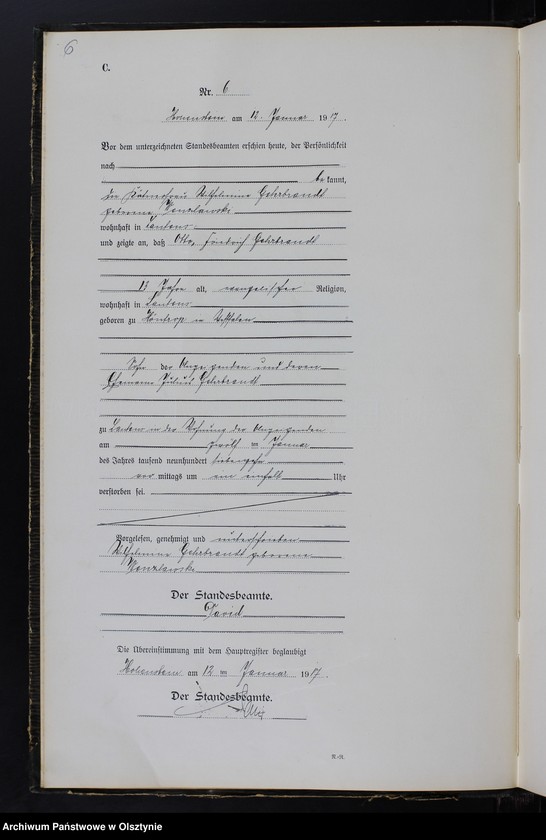 6
C.
Nr. 6
am 12. Januar 1917.
Vor dem unterzeichneten Standesbeamten erschien heute, der Persönlichkeit
nach
be kannt,
die Wilhelmine Gehrbrandt
geborene
wohnhaft in
und zeigte an, daß Otto, Friedrich Gehrbrandt
13 Jahre alt, evangelischer Religion,
wohnhaft in
geboren zu in Westfalen
Sohn der Anzeigenden und deren
Ehemann Julius Gehrbrandt
zu in der Wohnung der Anzeigenden
am zwölf ten Januar
des Jahres tausend neunhundert siebenzehn
vor mittags um ein einhalb Uhr
verstorben sei.
Vorgelesen, genehmigt und unterschrieben
Wilhelmine Gehrbrandt geborene
Der Standesbeamte.
David
Die Übereinstimmung mit dem Hauptregister beglaubigt
am 12 ten Januar 1917.
Der Standesbeamte.
Archiwum Państwowe w Olsztynie